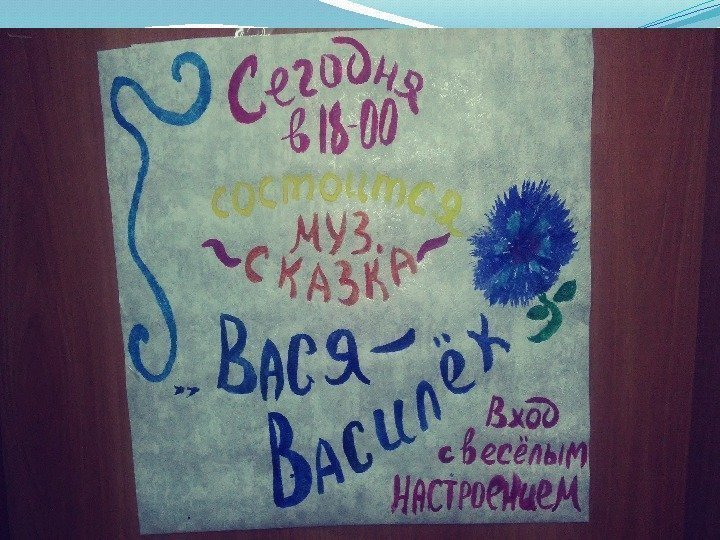 Сегодня
в 18-00
состоится
муз.
~СКАЗКА~
„Вася-
Василёк
Вход
с весёлым
настроением